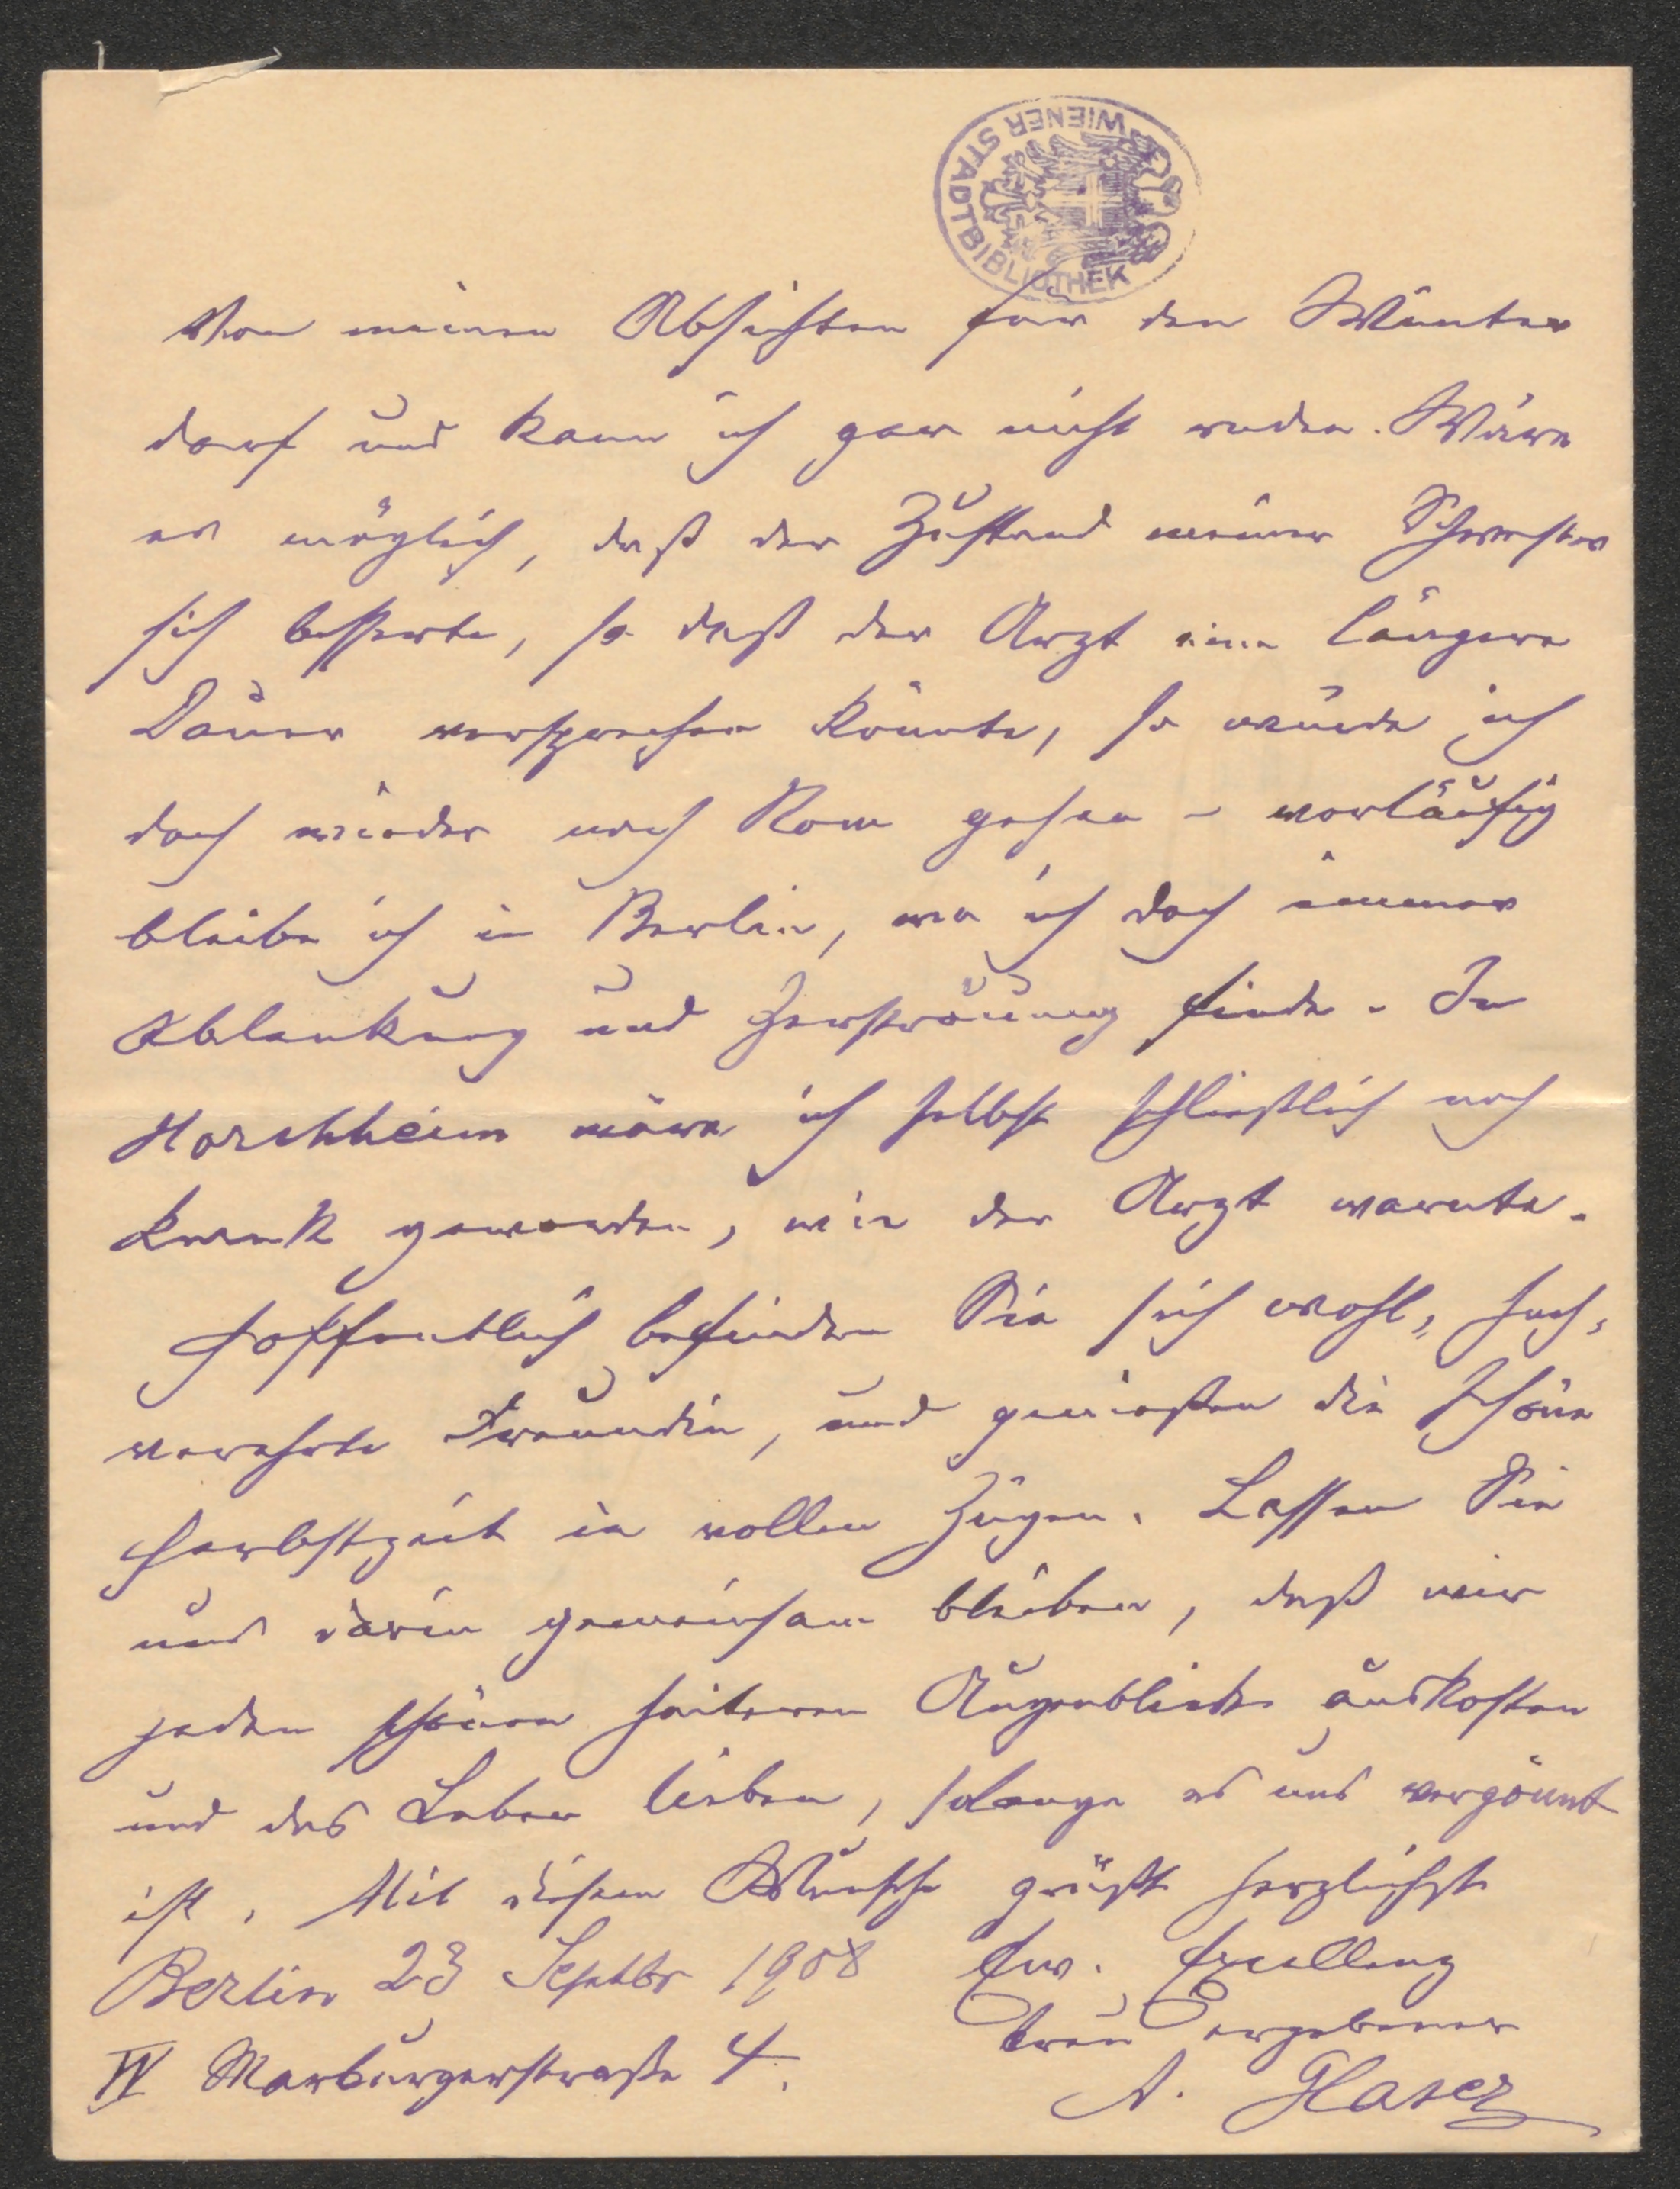 WIENER STADTBIBLIOTHEK
Von meinen Absichten für den Winter
darf und kann ich gar nicht reden. Wäre
es möglich, daß der Zustand meiner Schwester
sich besserte, so daß der Arzt eine längere
Dauer versprechen könnte, so würde ich
doch wieder nach Rom gehen - vorläufig
bleibe ich in Berlin, wo ich doch immer
Ablenkung und Zerstreuung finde. In
Horchheim wäre ich selbst schließlich noch
krank geworden, wie der Arzt warnte.
Hoffentlich befinden Sie sich wohl, hoch,
verehrte Freundin, und genießen die schöne
Herbstzeit in vollen Zügen. Lassen Sie
uns darin gemeinsam bleiben, daß wir
jeden schönen heiteren Augenblick auskosten
und das Leben lieben, solange es uns vergönnt
ist. Mit diesem Wunsche grüßt herzlichst
Berlin 23 Septbr 1908 Ew. Excellenz
treu ergebener
W Marburgerstraße 4. A. Glaser